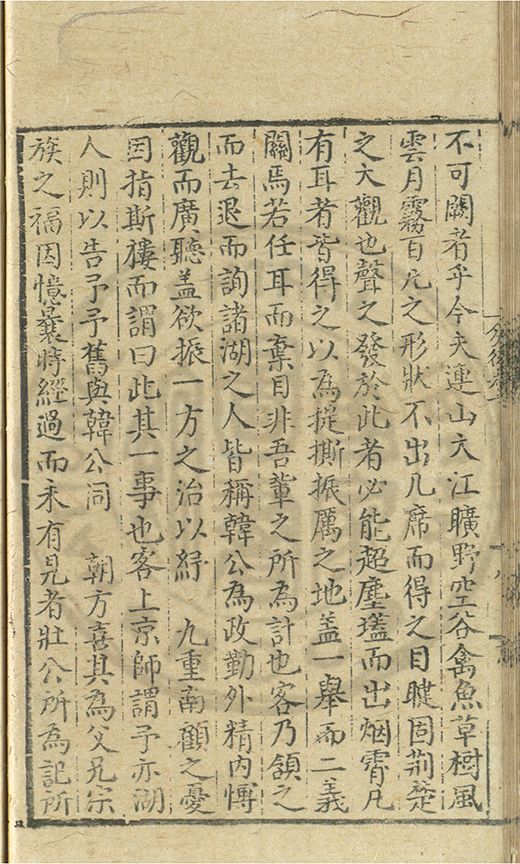 不可闕者乎今夫連山大江曠野空谷禽魚草樹風
雲月霧百凡之形狀不出几席而得之目睫固荆楚
之大觀也聲之發於此者必能超塵壒而出烟霄凡
有耳者皆得之以為提撕振厲之地盖一舉而二義
關焉若任耳而棄目非吾輩之所為計也客乃頷之
而去退而詢諸湖之人皆稱韓公為政勤外精内慱
觀而廣聽盖欲振一方之治以紓　九重南顧之憂
因指斯樓而謂曰此其一事也客上京師謂予亦湖
人則以告予予舊與韓公同　朝方喜其為父兄宗
族之福因憶曩時經過而未有見者壮公所為記所